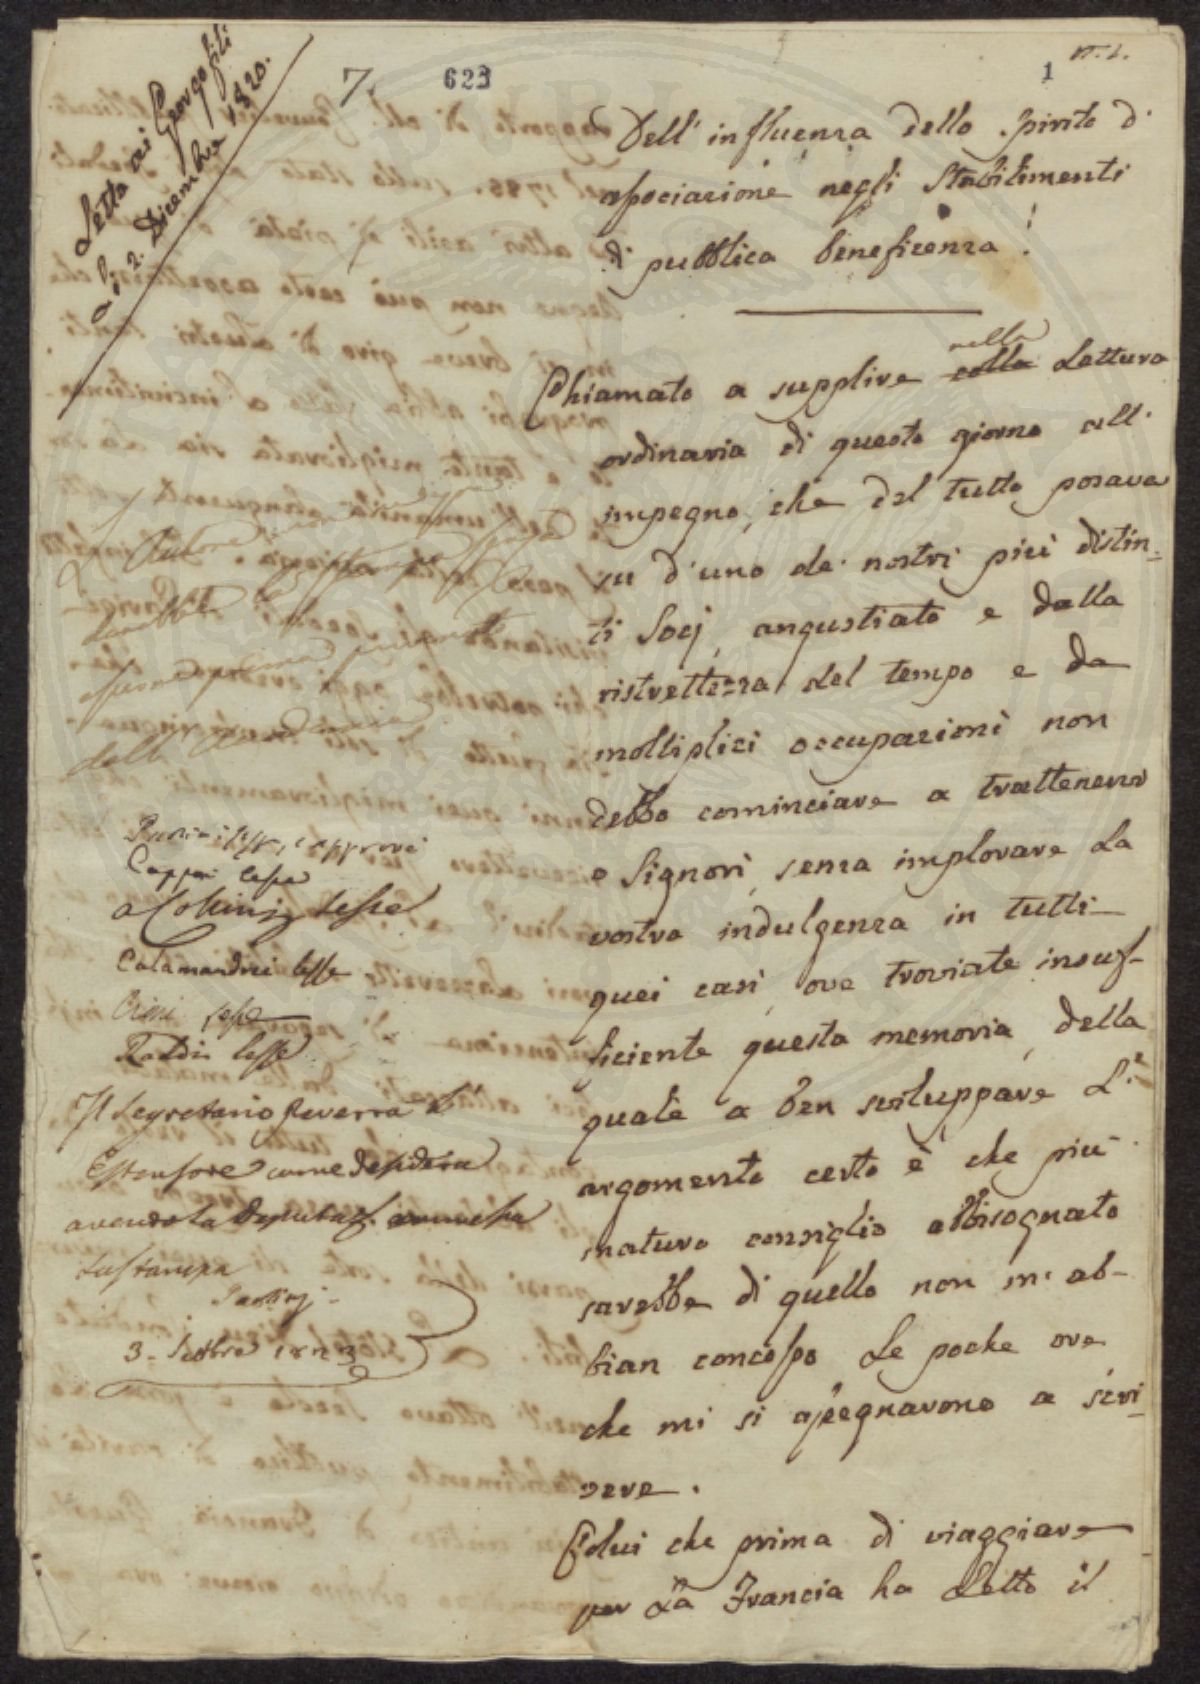 7.
623
1
Letta ai Georgofili
a dì 2. Dicembre 1820.
Dell' influenza dello spirito d'
associazione negli stabilimenti
di pubblica beneficenza.
Chiamato a supplire colla nella Lettura
ordinaria di questo giorno all'
impegno, che del tutto posava
su d'uno de' nostri più distin-
ti Socj, angustiato e dalla
ristrettezza del tempo e da
molliplici occupazioni non
debbo cominciare a trattenervi
o Signori, senza implorare la
vostra indulgenza in tutti
quei casi ove troviate insuf-
ficiente questa memoria, della
quale a ben sviluppare l'
argomento certo è che più
maturo consiglio abbisognato
sarebbe di quello non m' ab-
bian concesso le poche ore
che mi si assegnarono a scri-
vere.
Colui che prima di viaggiare
per la Francia ha letto il
L'Autore
dell' Accademia
lesse, e approvò
Capponi lesse
lesse
Calamandrei lesse
lesse
lesse
Il Segretario
Estensore come desidera
avendo la Deputaz.
la stampa
3.